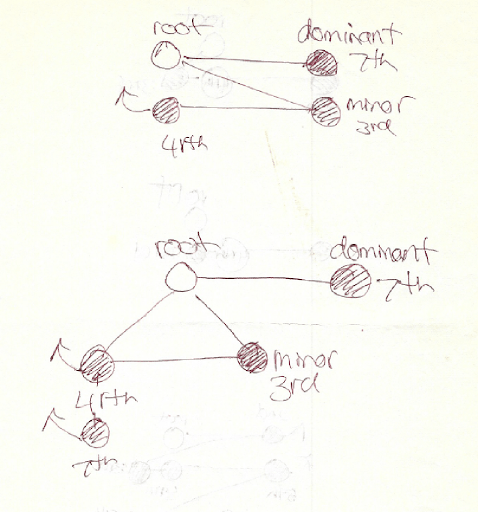 root
dominant
7th
minor
3rd
4rth
root
dominant
7th
minor
3rd
4rth
7th